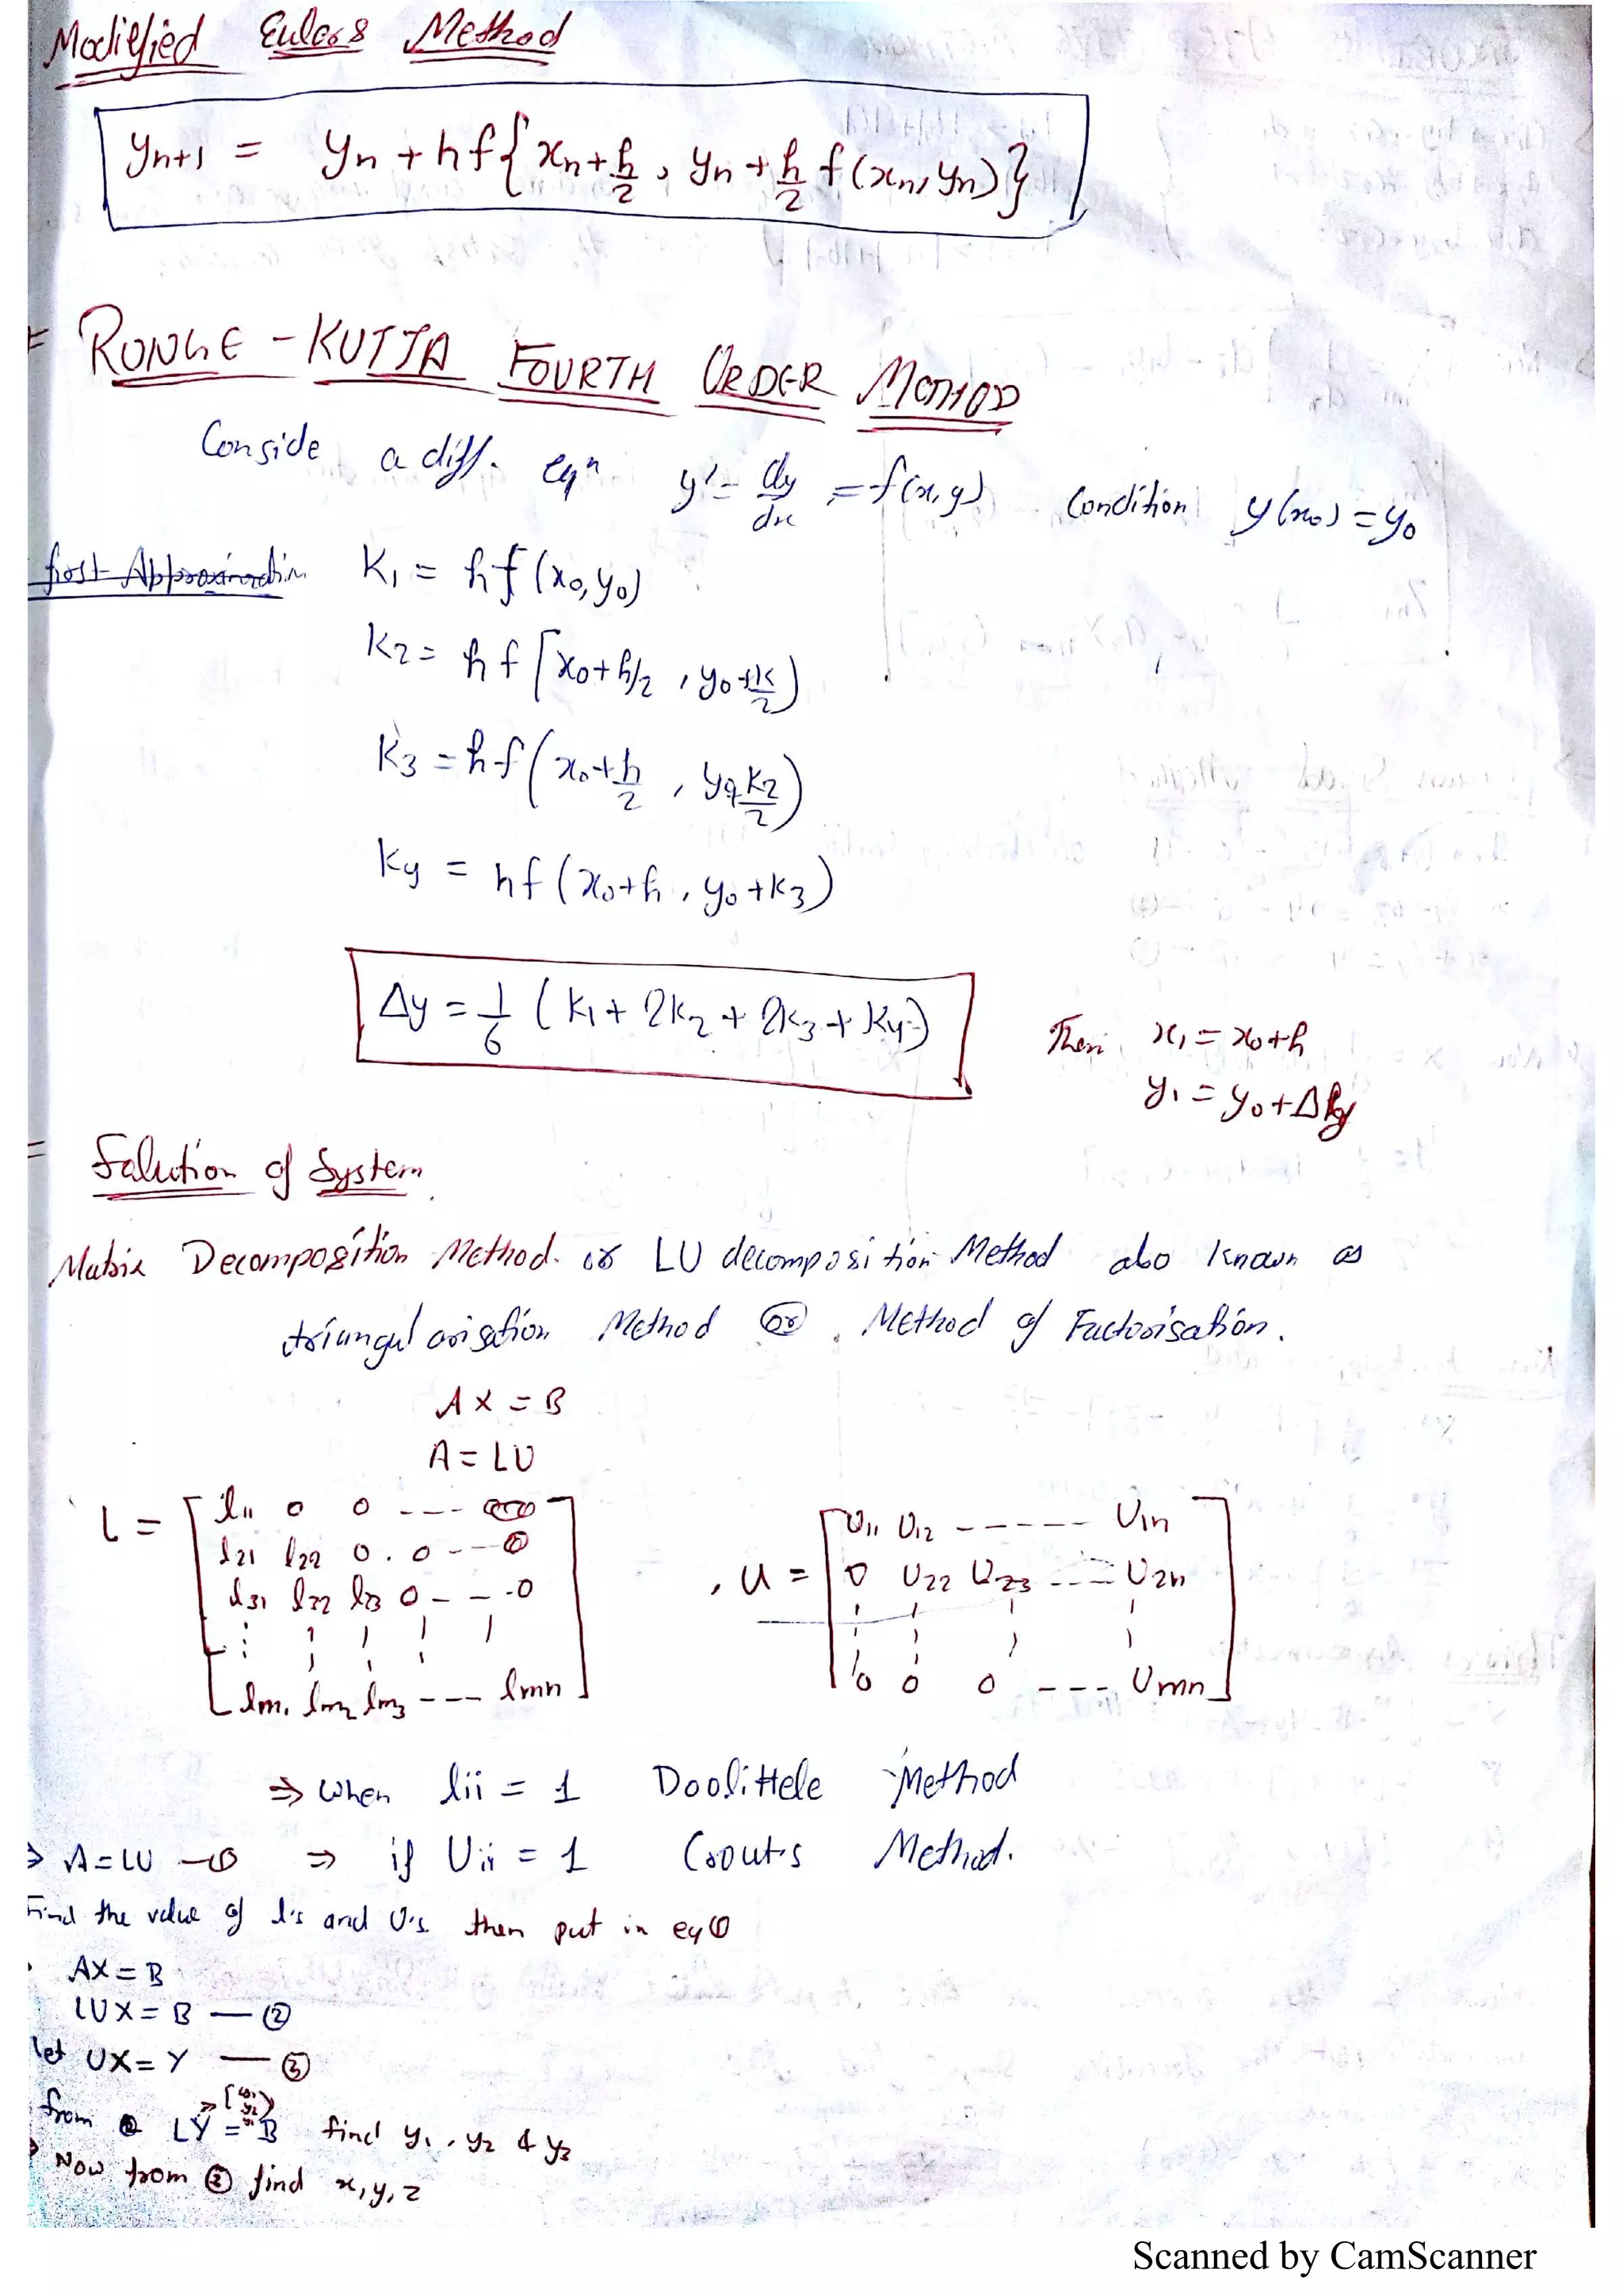 Modiefied Eulers Method
yn+1 = yn + hf{xn+h/2, yn+h/2 f(xn, yn)}
= RUNGE-KUTTA FOURTH ORDER
Conside a diff. eqn y' = dy/dx = f(x,y) Condition y(x0) = y0
K1 = hf(x0, y0)
K2 = hf[x0+h/2, y0+k/2)
K3 = hf(x0+h/2, y0+k2/2)
K4 = hf(x0+h, y0+k3)
Δy = 1/6 (K1 + 2K2 + 2K3 + K4) Then x1 = x0+h
y1 = y0+Δy
= Solution of System.
Matrix Decomposition Method or LU decomposition Method also known as
triangularisation Method or Method of Factorisation.
AX = B
A = LU
L = [l11 0 0 ---
l21 l22 0 . 0 --- 0
l31 l22 l33 0 - - - 0
lm1 lm2 lm3 --- lmn]
, U = [U11 U12 ------ U1n
0 U22 U23 ---- U2n
0 0 0 --- Umn]
⇒ When lii = 1 Doolittele Method
⇒ A=LU —① ⇒ if Uii = 1 Crout's Method.
Find the value of l's and U's then put in eq①
AX = B
LUX = B —②
let UX = Y —③
from ② LY = B find y1, y2 & y3
Now from ③ find x, y, z
Scanned by CamScanner